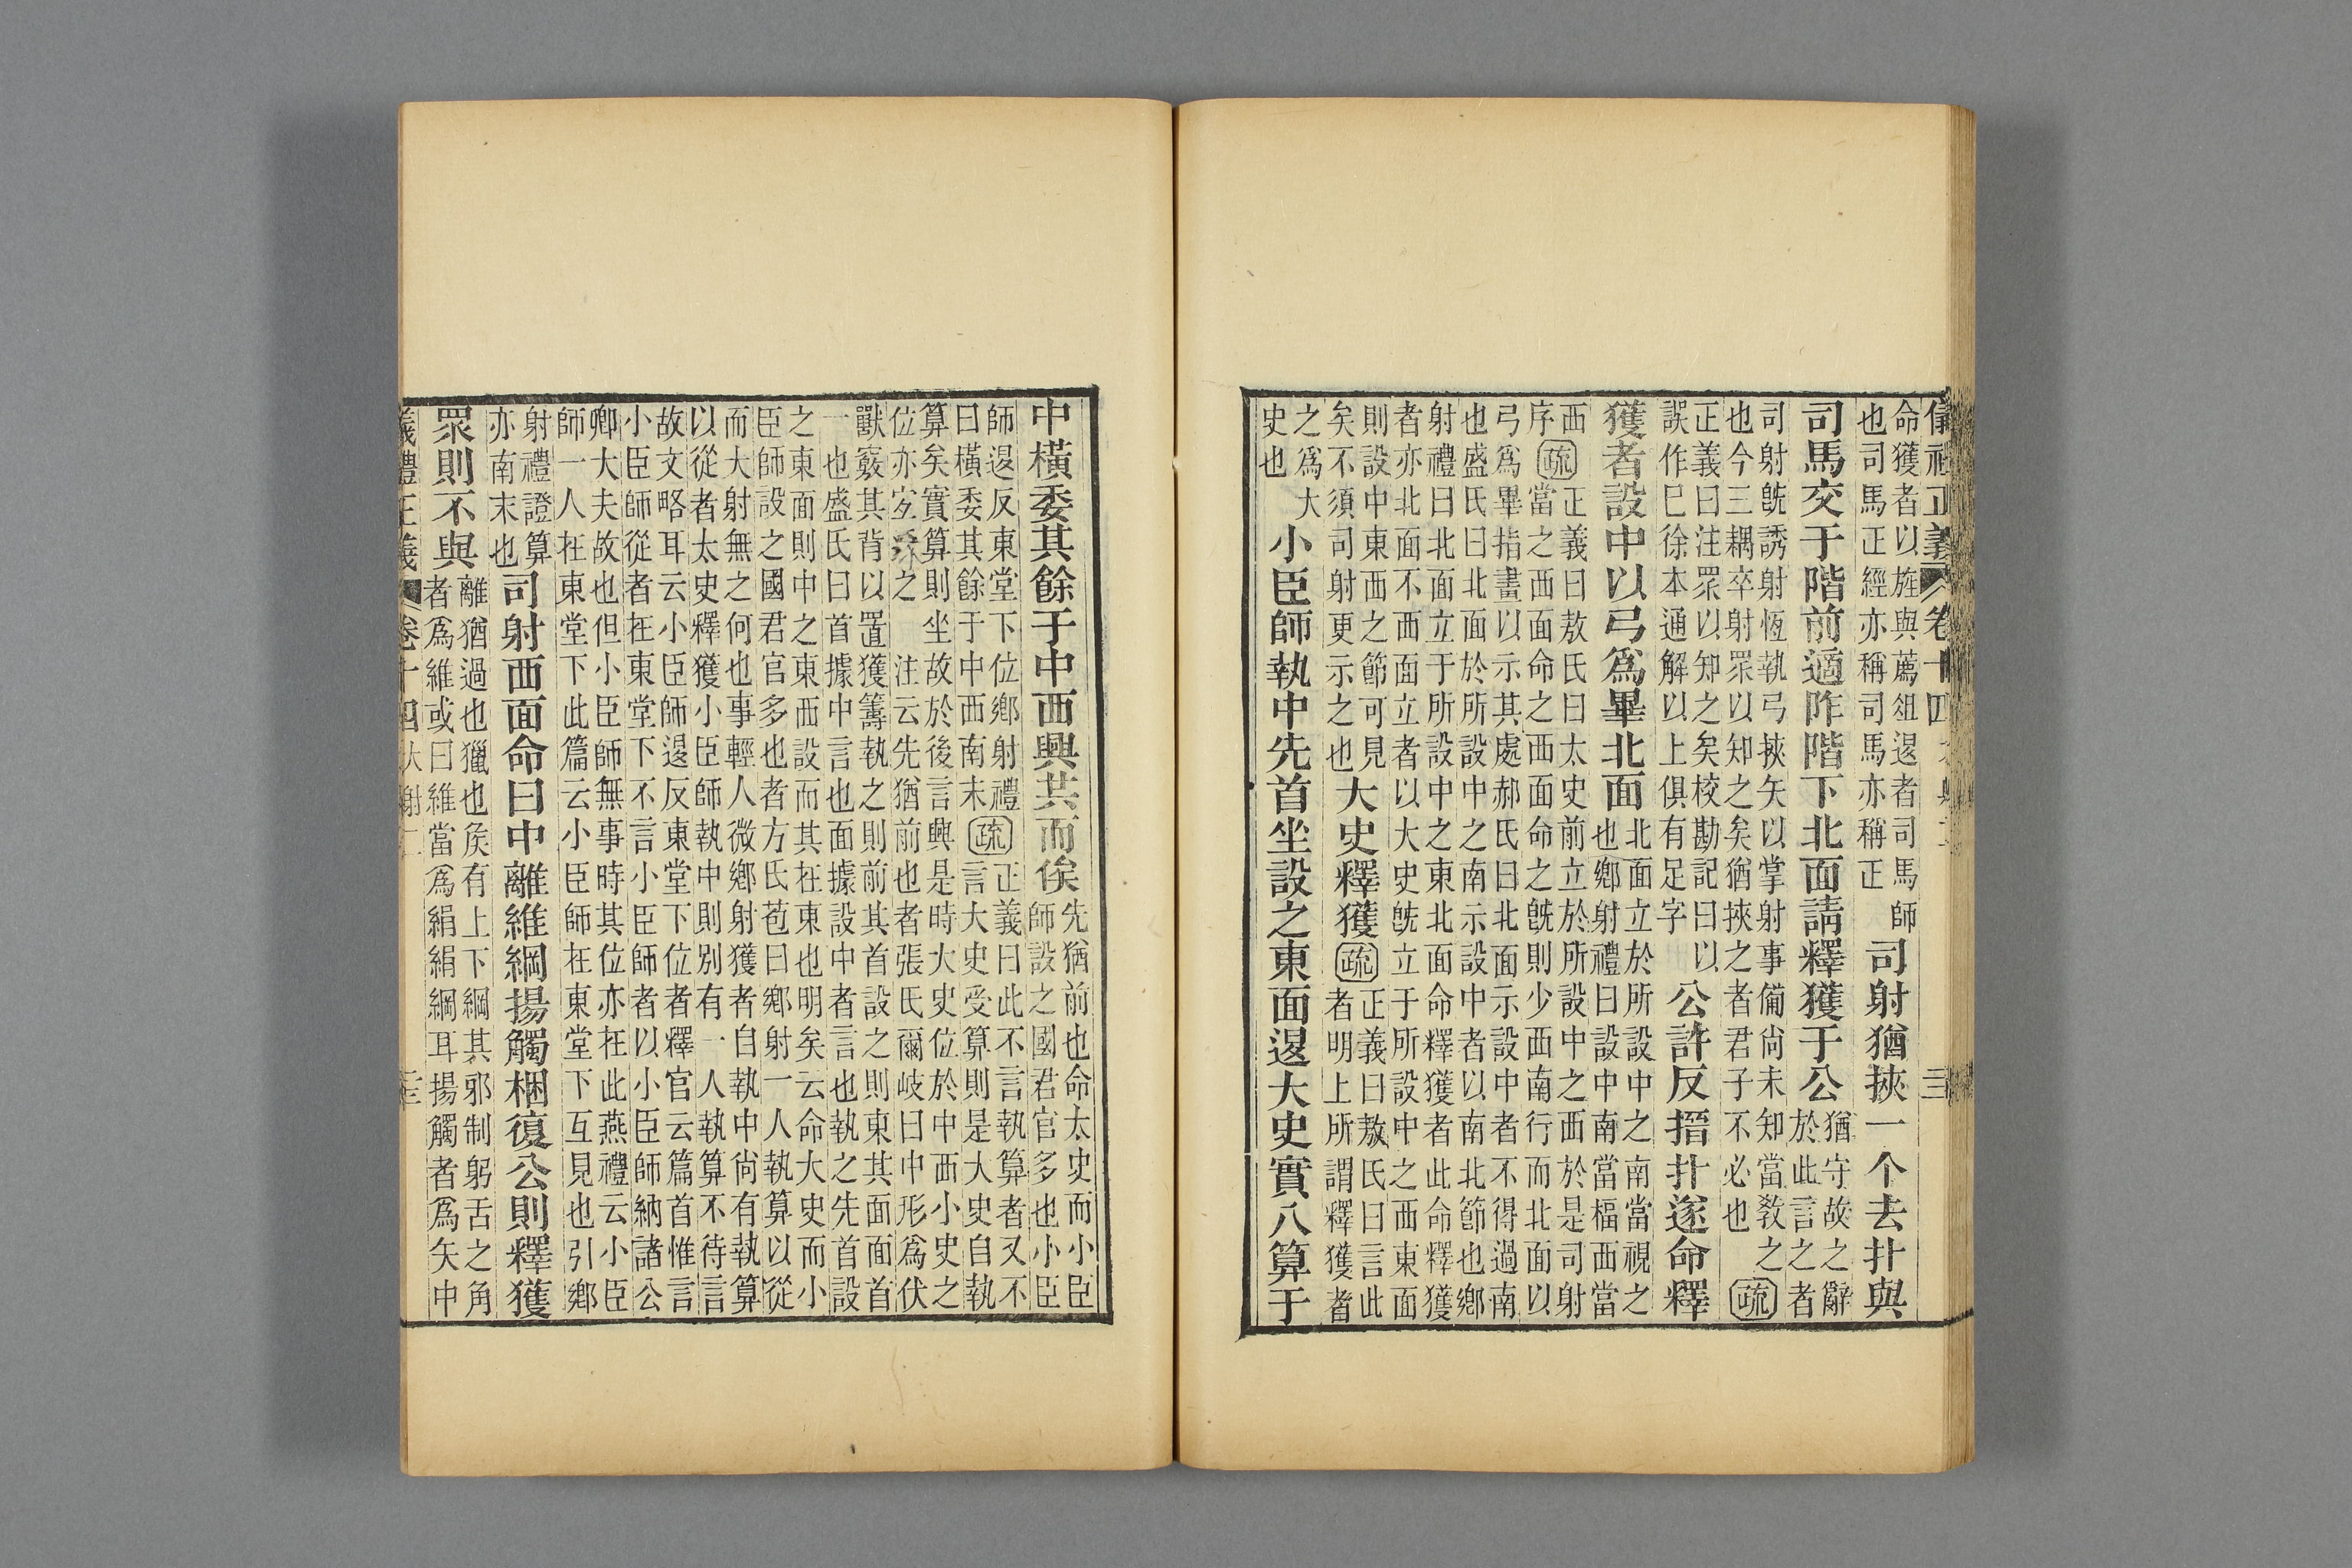 儀禮正義 卷十四
命獲者以旌與薦俎退者司馬師
也司馬正經亦稱司馬亦稱正
司射猶挾一个去扑與
司馬交于階前適阼階下北面請釋獲于公
猶守故之辭
於此言之者
司射旣誘射恆執弓挾矢以掌射事僃尙未知當敎之
也今三耦卒射眾以知之矣猶挾之者君子不必也 疏
正義曰注眾以知之矣校勘記曰以
誤作巳徐本通解以上俱有足字
公許反搢扑遂命釋
獲者設中以弓爲畢北面
北面立於所設中之南當視之
也鄉射禮曰設中南當楅西當
西
序 疏
正義曰敖氏曰太史前立於所設中之西於是司射
當之西面命之西面命之旣則少西南行而北面以
弓爲畢指畫以示其處郝氏曰北面示設中者不得過南
也盛氏曰北面於所設中之南示設中者以南北節也鄉
射禮曰北面立于所設中之東北面命釋獲者此命釋獲
者亦北面不西面立者以大史旣立于所設中之西東面
則設中東西之節可見
矣不須司射更示之也
大史釋獲 疏
正義曰敖氏曰言此
者明上所謂釋獲者
之爲大
史也
小臣師執中先首坐設之東面退大史實八算于
中橫委其餘于中西興共而俟
先猶前也命太史而小臣
師設之國君官多也小臣
師退反東堂下位鄉射禮
曰橫委其餘于中西南末 疏
正義曰此不言執算者又不
言大史受算則是大史自執
算矣實算則坐故於後言興是時大史位於中西小史之
位亦宜之 注云先猶前也者張氏爾岐曰中形爲伏
獸竅其背以置獲籌執之則前其首設之則東其面面首
一也盛氏曰首據中言也面據設中者言也執之先首設
之東面則中之東西設而其在東也明矣云命大史而小
臣師設之國君官多也者方氏苞曰鄉射一人執算以從
而大射無之何也事輕人微鄉射獲者自執中尙有執算
以從者太史釋獲小臣師執中則別有一人執算不待言
故文略耳云小臣師退反東堂下位者釋官云篇首惟言
小臣師從者在東堂下不言小臣師者以小臣師納諸公
卿大夫故也但小臣師無事時其位亦在此燕禮云小臣
師一人在東堂下此篇云小臣師在東堂下互見也引鄉
射禮證算
亦南末也
司射西面命曰中離維綱揚觸梱復公則釋獲
眾則不與
離猶過也獵也矦有上下綱其邪制躬舌之角
者爲維或曰維當爲絹絹綱耳揚觸者爲矢中
儀禮正義 卷十四 大射二